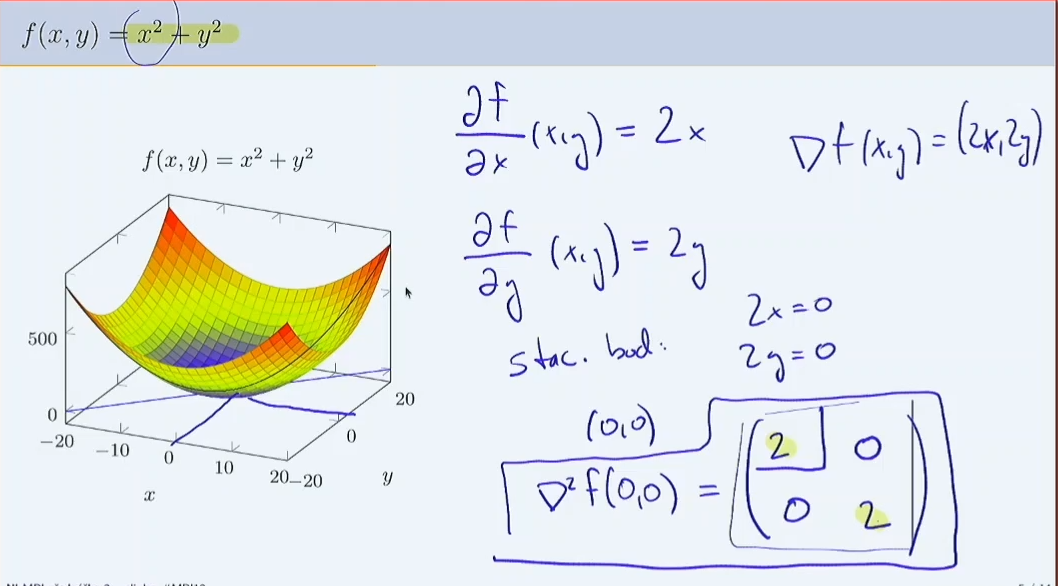 f(x, y) = x² + y²
f(x, y) = x² + y²
500
0
−20
−10
0
10
20
−20
0
20
x
y
∂f/∂x (x,y) = 2x
∇f(x,y) = (2x, 2y)
∂f/∂y (x,y) = 2y
stac. bod:
2x = 0
2y = 0
(0,0)
∇²f(0,0) = (2 0
0 2)